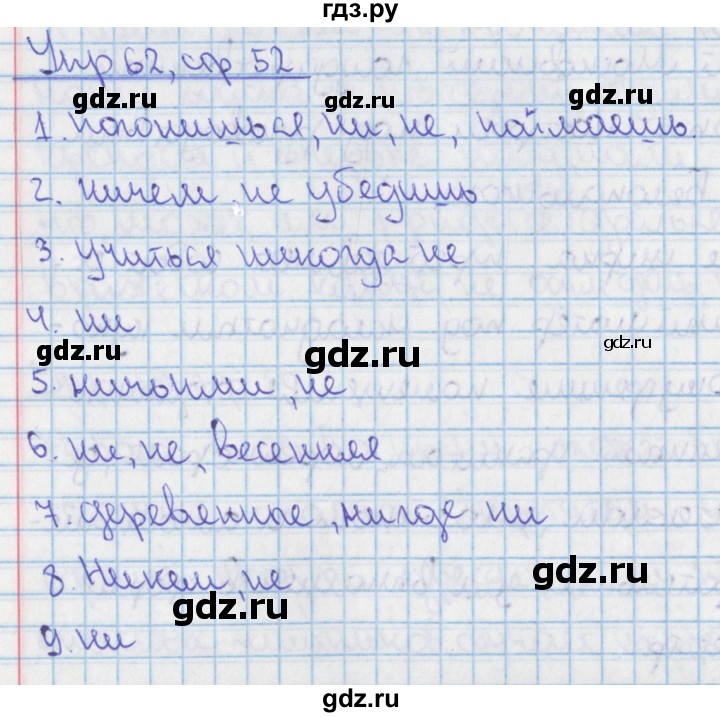 гдз.ру
Упр 62, стр 52
gdz.ru gdz.ru gdz.ru
1. погонишься, ни, не, поймаешь.
2. ничем, не убедишь
3. учиться никогда не
4. ни
gdz.ru gdz.ru gdz.ru
5. ничьими, не
6. ни, не, весенняя
7. деревенские, нигде ни
8. Никем, не
gdz.ru gdz.ru
9. ни
gdz.ru